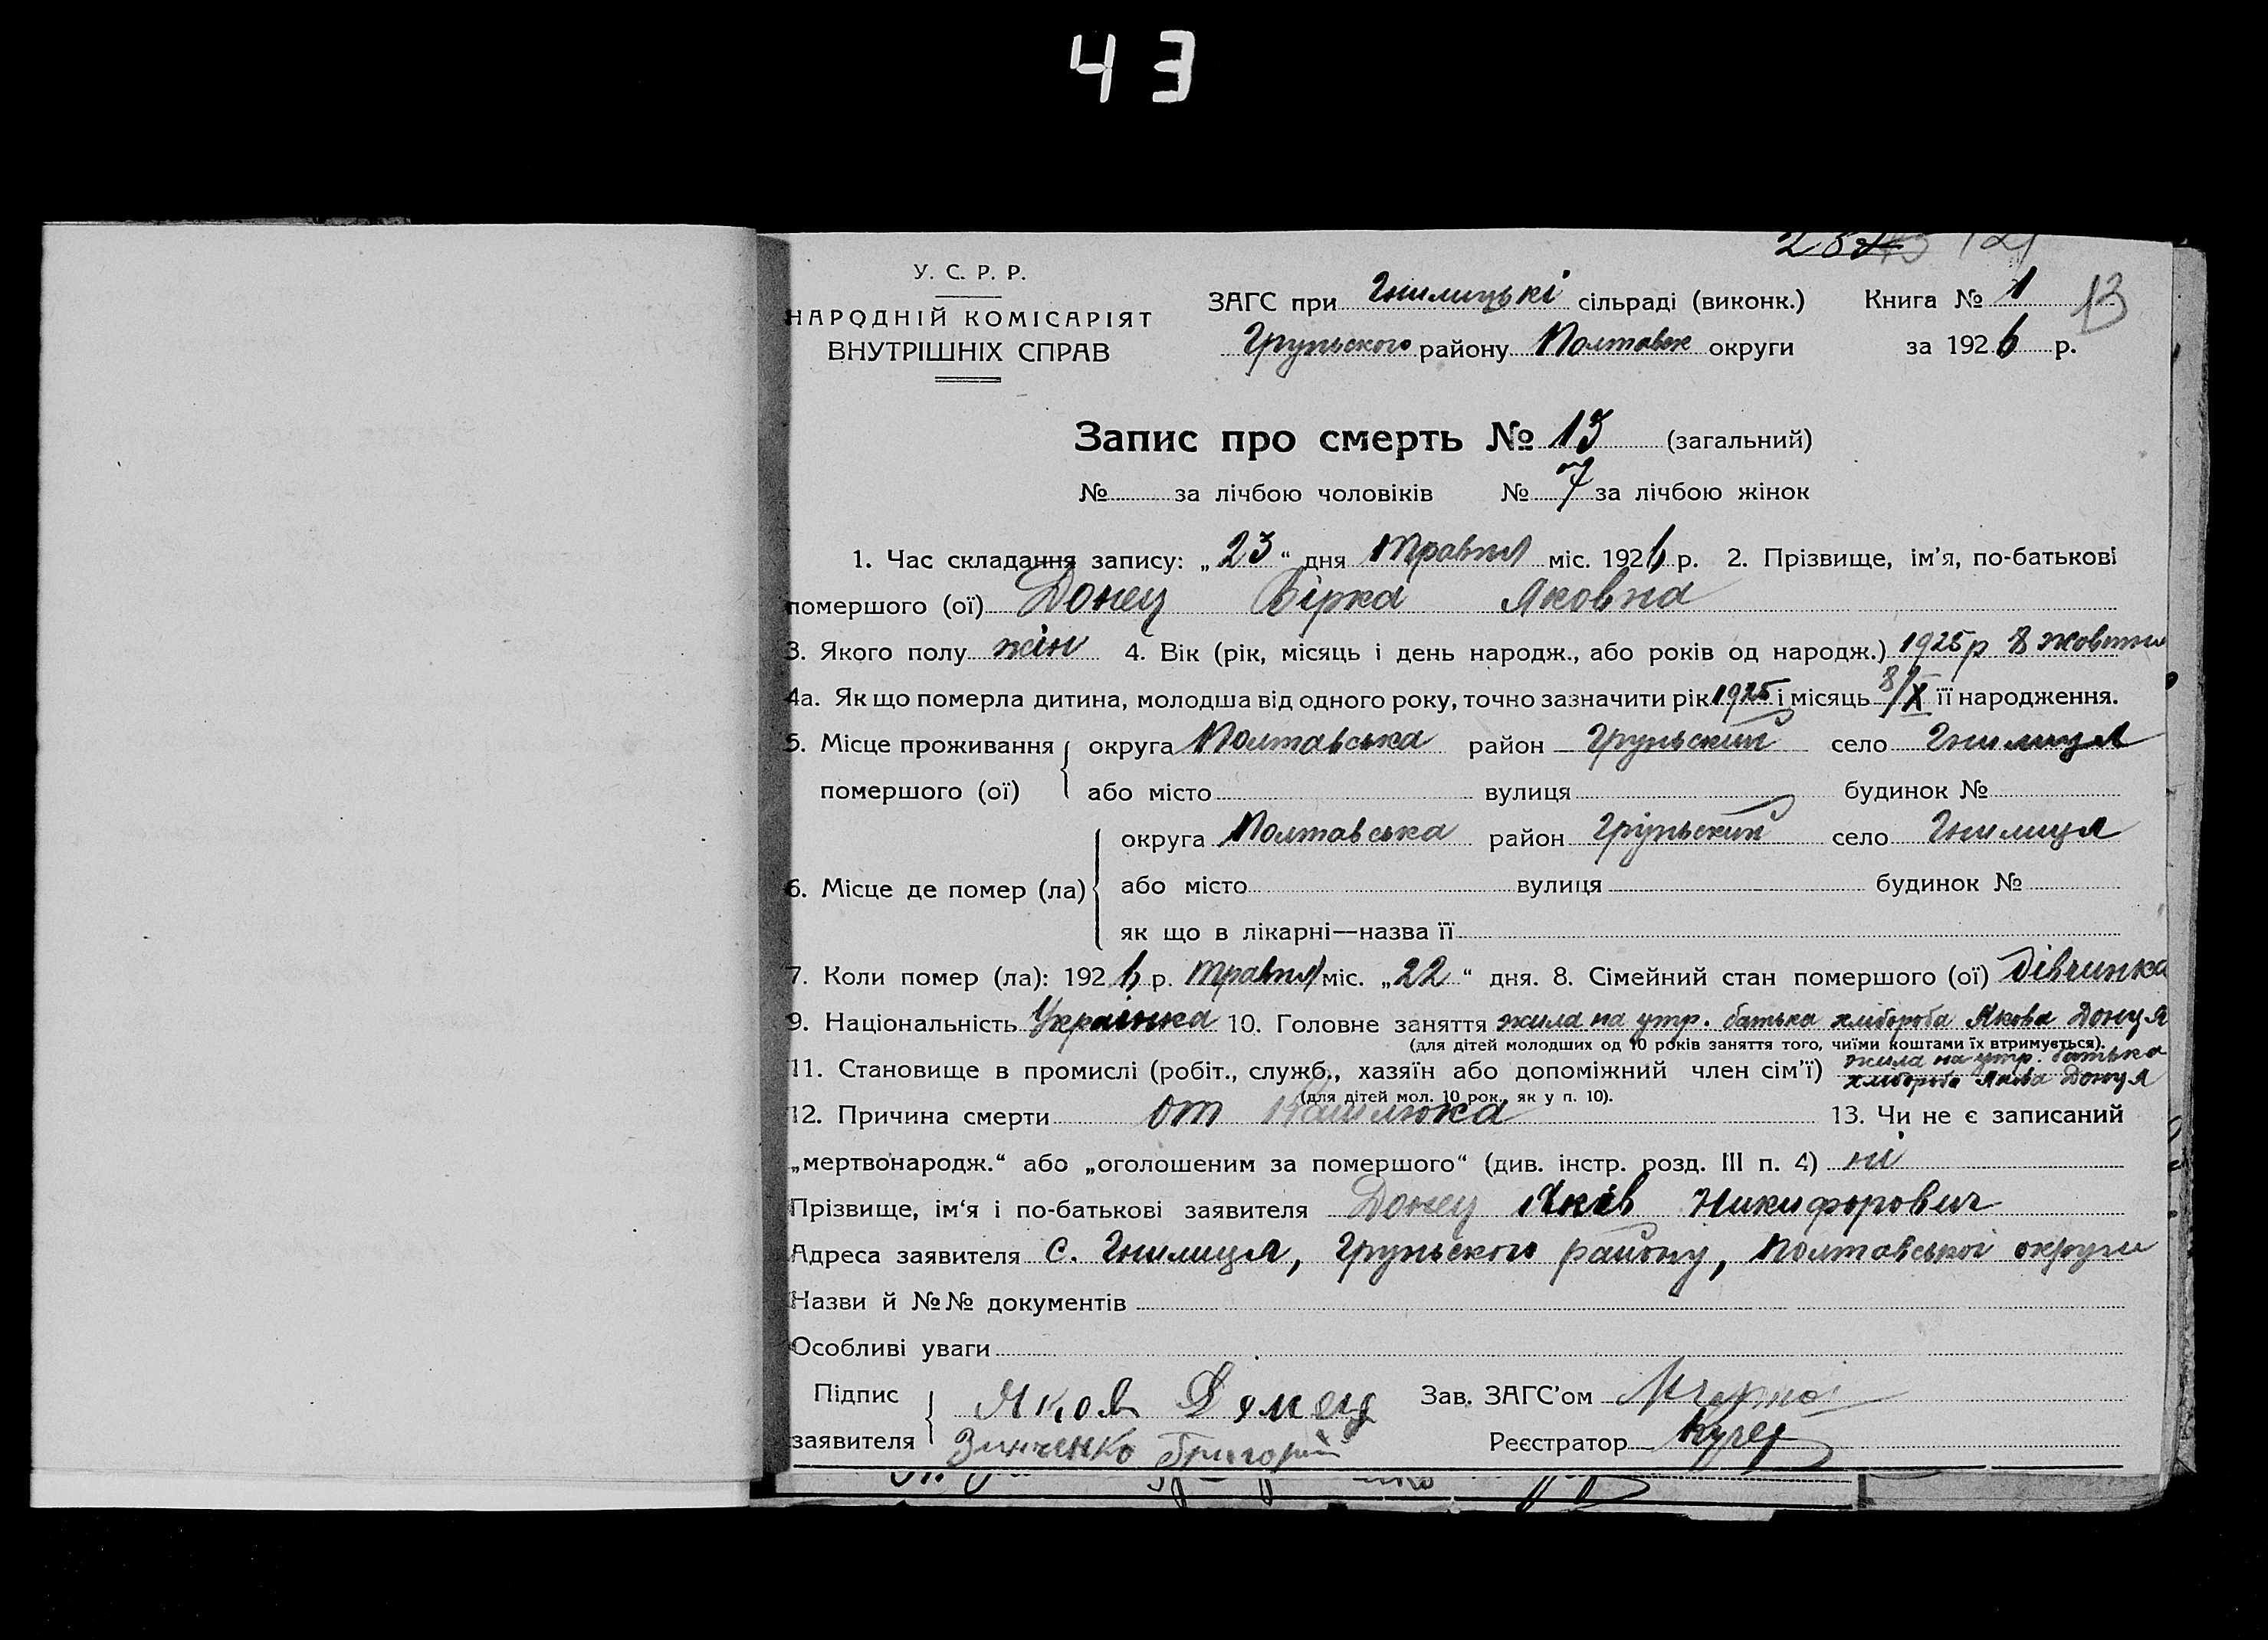 43
13
У. С. Р. Р.
НАРОДНІЙ КОМІСАРІЯТ
ВНУТРІШНІХ СПРАВ
ЗАГС при Гнилицькі сільраді (виконк.) Книга № 1
Грунського району Полтавськ округи за 1926 р.
Запис про смерть № 13 (загальний)
№ за лічбою чоловіків № 7 за лічбою жінок
1. Час складання запису: „23“ дня травня міс. 1926 р. 2. Прізвище, ім'я, по-батькові
помершого (ої) Донец Вірка Яковна
3. Якого полу жін 4. Вік (рік, місяць і день народж., або років од народж.) 1925 р 8 жовтня
4а. Як що померла дитина, молодша від одного року, точно зазначити рік 1925 і місяць 8/X її народження.
5. Місце проживання помершого (ої) округа Полтавська район Грунський село Гнилиця
або місто вулиця будинок №
6. Місце де помер (ла) округа Полтавська район Грунський село Гнилиця
або місто вулиця будинок №
як що в лікарні—назва її
7. Коли помер (ла): 1926 р. травня міс. „22“ дня. 8. Сімейний стан помершого (ої) дівчинка
9. Національність Українка 10. Головне заняття жила на утр. батька хлібороба Якова Донця
(для дітей молодших од 10 років заняття того, чиїми коштами їх втримується).
11. Становище в промислі (робіт., служб., хазяїн або допоміжний член сім'ї) жила на утр. батька
хлібороба Якова Донця
(для дітей мол. 10 рок., як у п. 10).
12. Причина смерти от Кашлюка 13. Чи не є записаний
„мертвонародж.“ або „оголошеним за помершого“ (див. інстр. розд. III п. 4) ні
Прізвище, ім'я і по-батькові заявителя Донец Яків Никифорович
Адреса заявителя с. Гнилиця, Грунського району, Полтавської округи
Назви й №№ документів
Особливі уваги
Підпис заявителя Яков Донец Зав. ЗАГС'ом
Зинченко Григорій Реєстратор Кучер